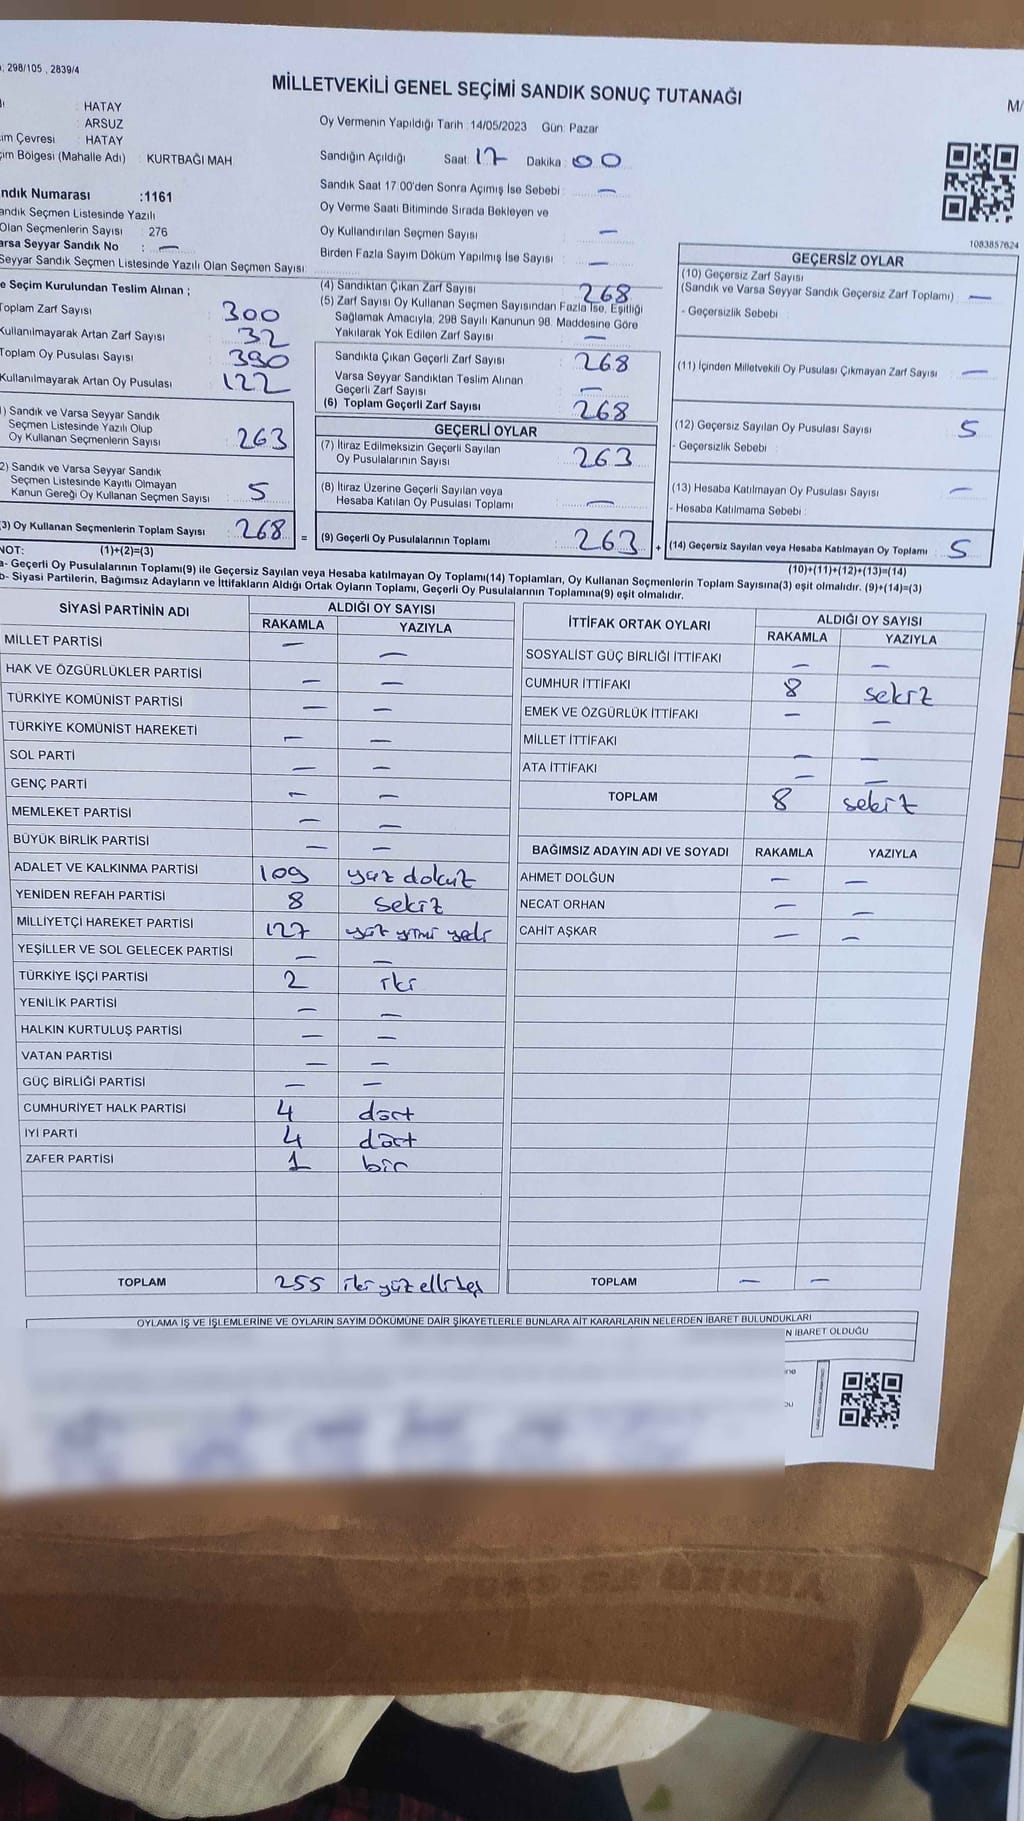 298/105 , 2839/4
MİLLETVEKİLİ GENEL SEÇİMİ SANDIK SONUÇ TUTANAĞI
M/
HATAY
: ARSUZ
im Çevresi : HATAY
çim Bölgesi (Mahalle Adı) : KURTBAĞI MAH.
ndık Numarası :1161
andık Seçmen Listesinde Yazılı
Olan Seçmenlerin Sayısı : 276
arsa Seyyar Sandık No : —
Seyyar Sandık Seçmen Listesinde Yazılı Olan Seçmen Sayısı
Oy Vermenin Yapıldığı Tarih :14/05/2023 Gün: Pazar
Sandığın Açıldığı Saat: 17 Dakika: 00
Sandık Saat 17:00'den Sonra Açımış İse Sebebi : —
Oy Verme Saati Bitiminde Sırada Bekleyen ve
Oy Kullandırılan Seçmen Sayısı : —
Birden Fazla Sayım Döküm Yapılmış İse Sayısı : —
1083857624
e Seçim Kurulundan Teslim Alınan ;
Toplam Zarf Sayısı 300
Kullanılmayarak Artan Zarf Sayısı 32
Toplam Oy Pusulası Sayısı 390
Kullanılmayarak Artan Oy Pusulası 122
) Sandık ve Varsa Seyyar Sandık
Seçmen Listesinde Yazılı Olup
Oy Kullanan Seçmenlerin Sayısı : 263
2) Sandık ve Varsa Seyyar Sandık
Seçmen Listesinde Kayıtlı Olmayan
Kanun Gereği Oy Kullanan Seçmen Sayısı : 5
(3) Oy Kullanan Seçmenlerin Toplam Sayısı : 268 =
NOT: (1)+(2)=(3)
(4) Sandıktan Çıkan Zarf Sayısı : 268
(5) Zarf Sayısı Oy Kullanan Seçmen Sayısından Fazla İse, Eşitliği
Sağlamak Amacıyla, 298 Sayılı Kanunun 98. Maddesine Göre
Yakılarak Yok Edilen Zarf Sayısı : —
Sandıkta Çıkan Geçerli Zarf Sayısı : 268
Varsa Seyyar Sandıktan Teslim Alınan
Geçerli Zarf Sayısı : —
(6) Toplam Geçerli Zarf Sayısı : 268
GEÇERLİ OYLAR
(7) İtiraz Edilmeksizin Geçerli Sayılan
Oy Pusulalarının Sayısı : 263
(8) İtiraz Üzerine Geçerli Sayılan veya
Hesaba Katılan Oy Pusulası Toplamı : —
(9) Geçerli Oy Pusulalarının Toplamı : 263 +
GEÇERSİZ OYLAR
(10) Geçersiz Zarf Sayısı
(Sandık ve Varsa Seyyar Sandık Geçersiz Zarf Toplamı) : —
- Geçersizlik Sebebi :
(11) İçinden Milletvekili Oy Pusulası Çıkmayan Zarf Sayısı : —
(12) Geçersiz Sayılan Oy Pusulası Sayısı : 5
- Geçersizlik Sebebi :
(13) Hesaba Katılmayan Oy Pusulası Sayısı : —
- Hesaba Katılmama Sebebi :
(14) Geçersiz Sayılan veya Hesaba Katılmayan Oy Toplamı : 5
(10)+(11)+(12)+(13)=(14)
a- Geçerli Oy Pusulalarının Toplamı(9) ile Geçersiz Sayılan veya Hesaba katılmayan Oy Toplamı(14) Toplamları, Oy Kullanan Seçmenlerin Toplam Sayısına(3) eşit olmalıdır. (9)+(14)=(3)
b- Siyasi Partilerin, Bağımsız Adayların ve İttifakların Aldığı Ortak Oyların Toplamı, Geçerli Oy Pusulalarının Toplamına(9) eşit olmalıdır.
SİYASİ PARTİNİN ADI ALDIĞI OY SAYISI
RAKAMLA YAZIYLA
MİLLET PARTİSİ — —
HAK VE ÖZGÜRLÜKLER PARTİSİ — —
TÜRKİYE KOMÜNİST PARTİSİ — —
TÜRKİYE KOMÜNİST HAREKETİ — —
SOL PARTİ — —
GENÇ PARTİ — —
MEMLEKET PARTİSİ — —
BÜYÜK BİRLİK PARTİSİ — —
ADALET VE KALKINMA PARTİSİ 109 yüz dokuz
YENİDEN REFAH PARTİSİ 8 sekiz
MİLLİYETÇİ HAREKET PARTİSİ 127 yüz yirmi yedi
YEŞİLLER VE SOL GELECEK PARTİSİ — —
TÜRKİYE İŞÇİ PARTİSİ 2 iki
YENİLİK PARTİSİ — —
HALKIN KURTULUŞ PARTİSİ — —
VATAN PARTİSİ — —
GÜÇ BİRLİĞİ PARTİSİ — —
CUMHURİYET HALK PARTİSİ 4 dört
İYİ PARTİ 4 dört
ZAFER PARTİSİ 1 bir
TOPLAM 255 iki yüz elli beş
İTTİFAK ORTAK OYLARI ALDIĞI OY SAYISI
RAKAMLA YAZIYLA
SOSYALİST GÜÇ BİRLİĞİ İTTİFAKI — —
CUMHUR İTTİFAKI 8 sekiz
EMEK VE ÖZGÜRLÜK İTTİFAKI — —
MİLLET İTTİFAKI — —
ATA İTTİFAKI — —
TOPLAM 8 sekiz
BAĞIMSIZ ADAYIN ADI VE SOYADI RAKAMLA YAZIYLA
AHMET DOLĞUN — —
NECAT ORHAN — —
CAHİT AŞKAR — —
TOPLAM — —
OYLAMA İŞ VE İŞLEMLERİNE VE OYLARIN SAYIM DÖKÜMÜNE DAİR ŞİKAYETLERLE BUNLARA AİT KARARLARIN NELERDEN İBARET BULUNDUKLARI
N İBARET OLDUĞU